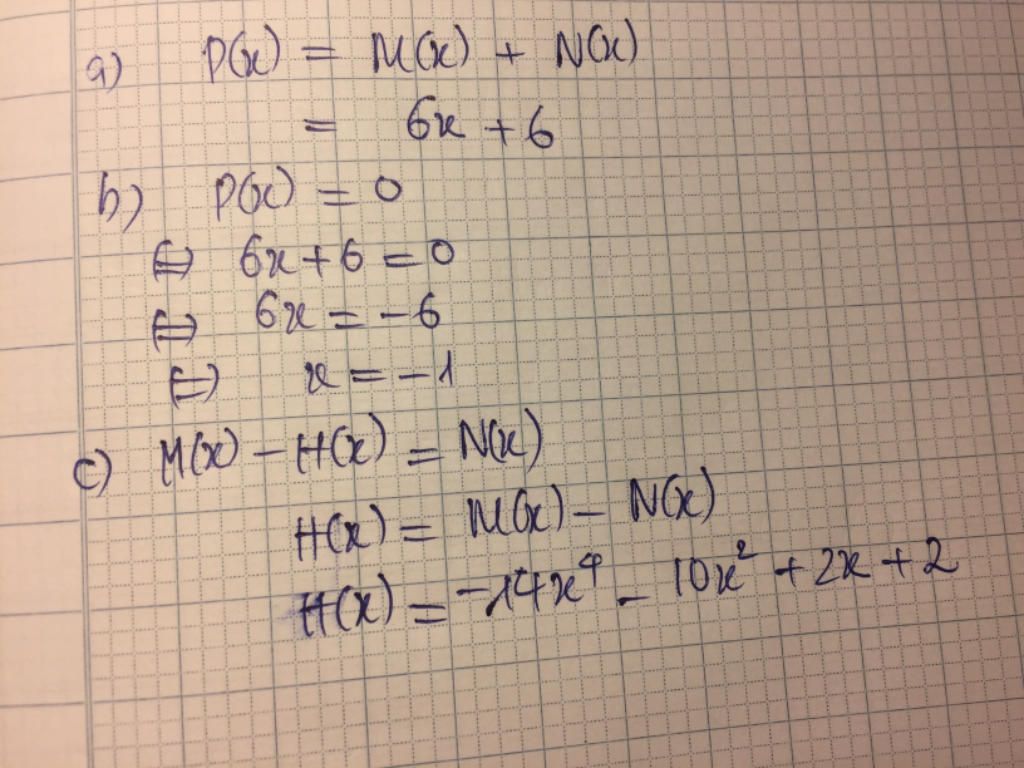 a) P(x) = M(x) + N(x)
= 6x + 6
b) P(x) = 0
⇔ 6x + 6 = 0
⇔ 6x = -6
⇔ x = -1
c) M(x) - H(x) = N(x)
H(x) = M(x) - N(x)
H(x) = -14x⁴ - 10x² + 2x + 2